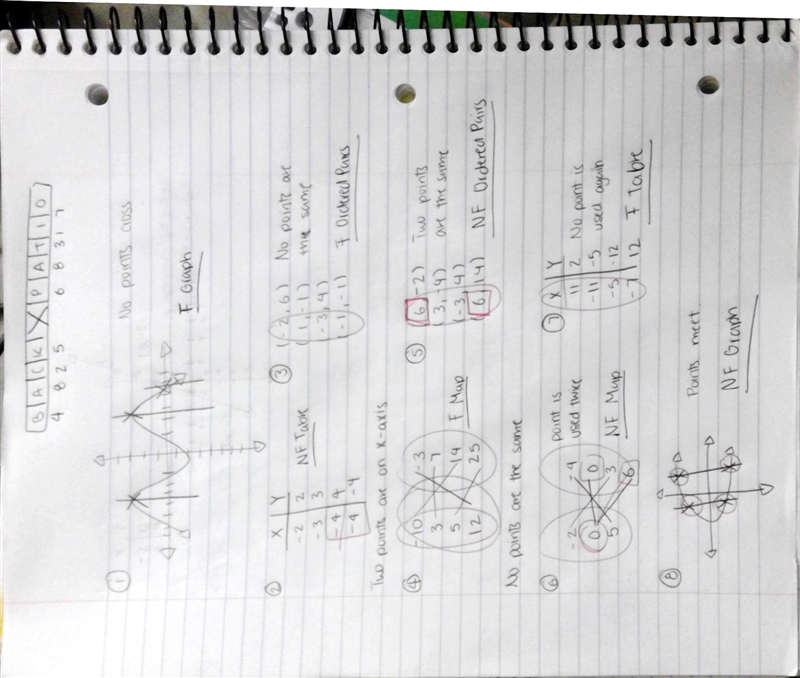 BACK X PATIO
4 8 2 5 6 8 3 1 7
① No points cross
F Graph
② X Y
-2 2
-3 3
-4 4
-4 -4
NF Table
Two points are on x-axis
③ (-2, 6) No points are
(1, -1) the same
(-3, 4)
(-1, -1) F Ordered Pairs
④ -10 -3
3 7
5 14
12 25
F Map
No points are the same
⑤ (6, -2) Two points
(3, -4) are the same
(-3, 4)
(6, 4) NF Ordered Pairs
⑥ -2 -4
0 0
5 3
6
point is
used twice
NF Map
⑦ X Y
11 2 No point is
-11 -5 used again
-5 -12
-7 12 F Table
⑧ Points meet
NF Graph